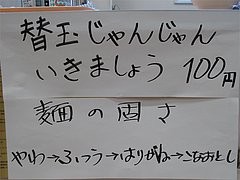 替玉じゃんじゃん
いきましょう 100円
麺の固さ
やわ→ふつう→はりがね→こなおとし